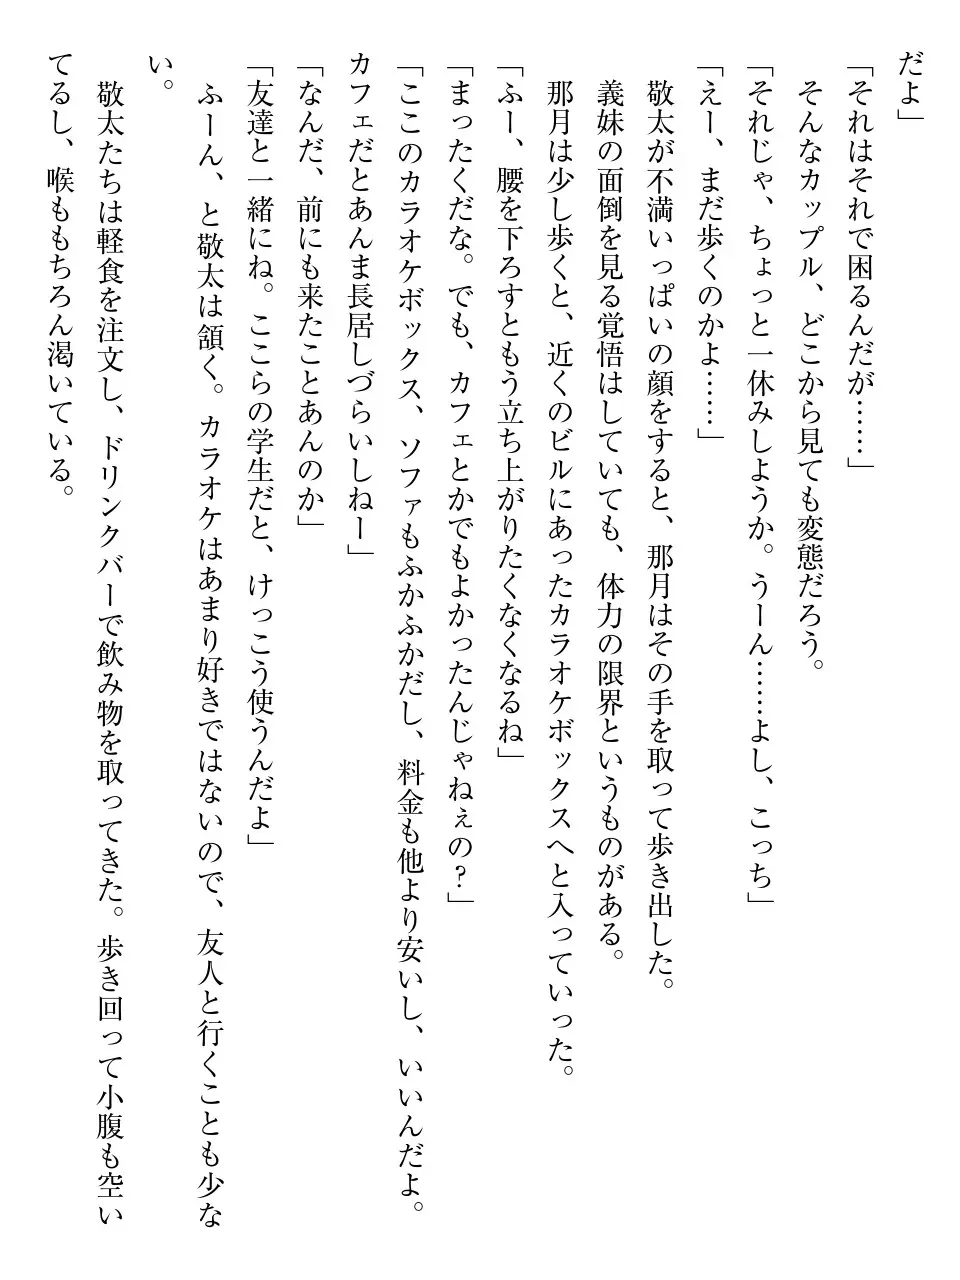 だよ」
「それはそれで困るんだが……」
そんなカップル、どこから見ても変態だろう。
「それじゃ、ちょっと一休みしようか。うーん……よし、こっち」
「えー、まだ歩くのかよ……」
敬太が不満いっぱいの顔をすると、那月はその手を取って歩き出した。
義妹の面倒を見る覚悟はしていても、体力の限界というものがある。
那月は少し歩くと、近くのビルにあったカラオケボックスへと入っていった。
「ふー、腰を下ろすともう立ち上がりたくなくなるね」
「まったくだな。でも、カフェとかでもよかったんじゃねぇの?」
「ここのカラオケボックス、ソファもふかふかだし、料金も他より安いし、いいんだよ。
カフェだとあんま長居しづらいしねー」
「なんだ、前にも来たことあんのか」
「友達と一緒にね。ここらの学生だと、けっこう使うんだよ」
ふーん、と敬太は頷く。カラオケはあまり好きではないので、友人と行くことも少な
い。
敬太たちは軽食を注文し、ドリンクバーで飲み物を取ってきた。歩き回って小腹も空い
てるし、喉ももちろん渇いている。